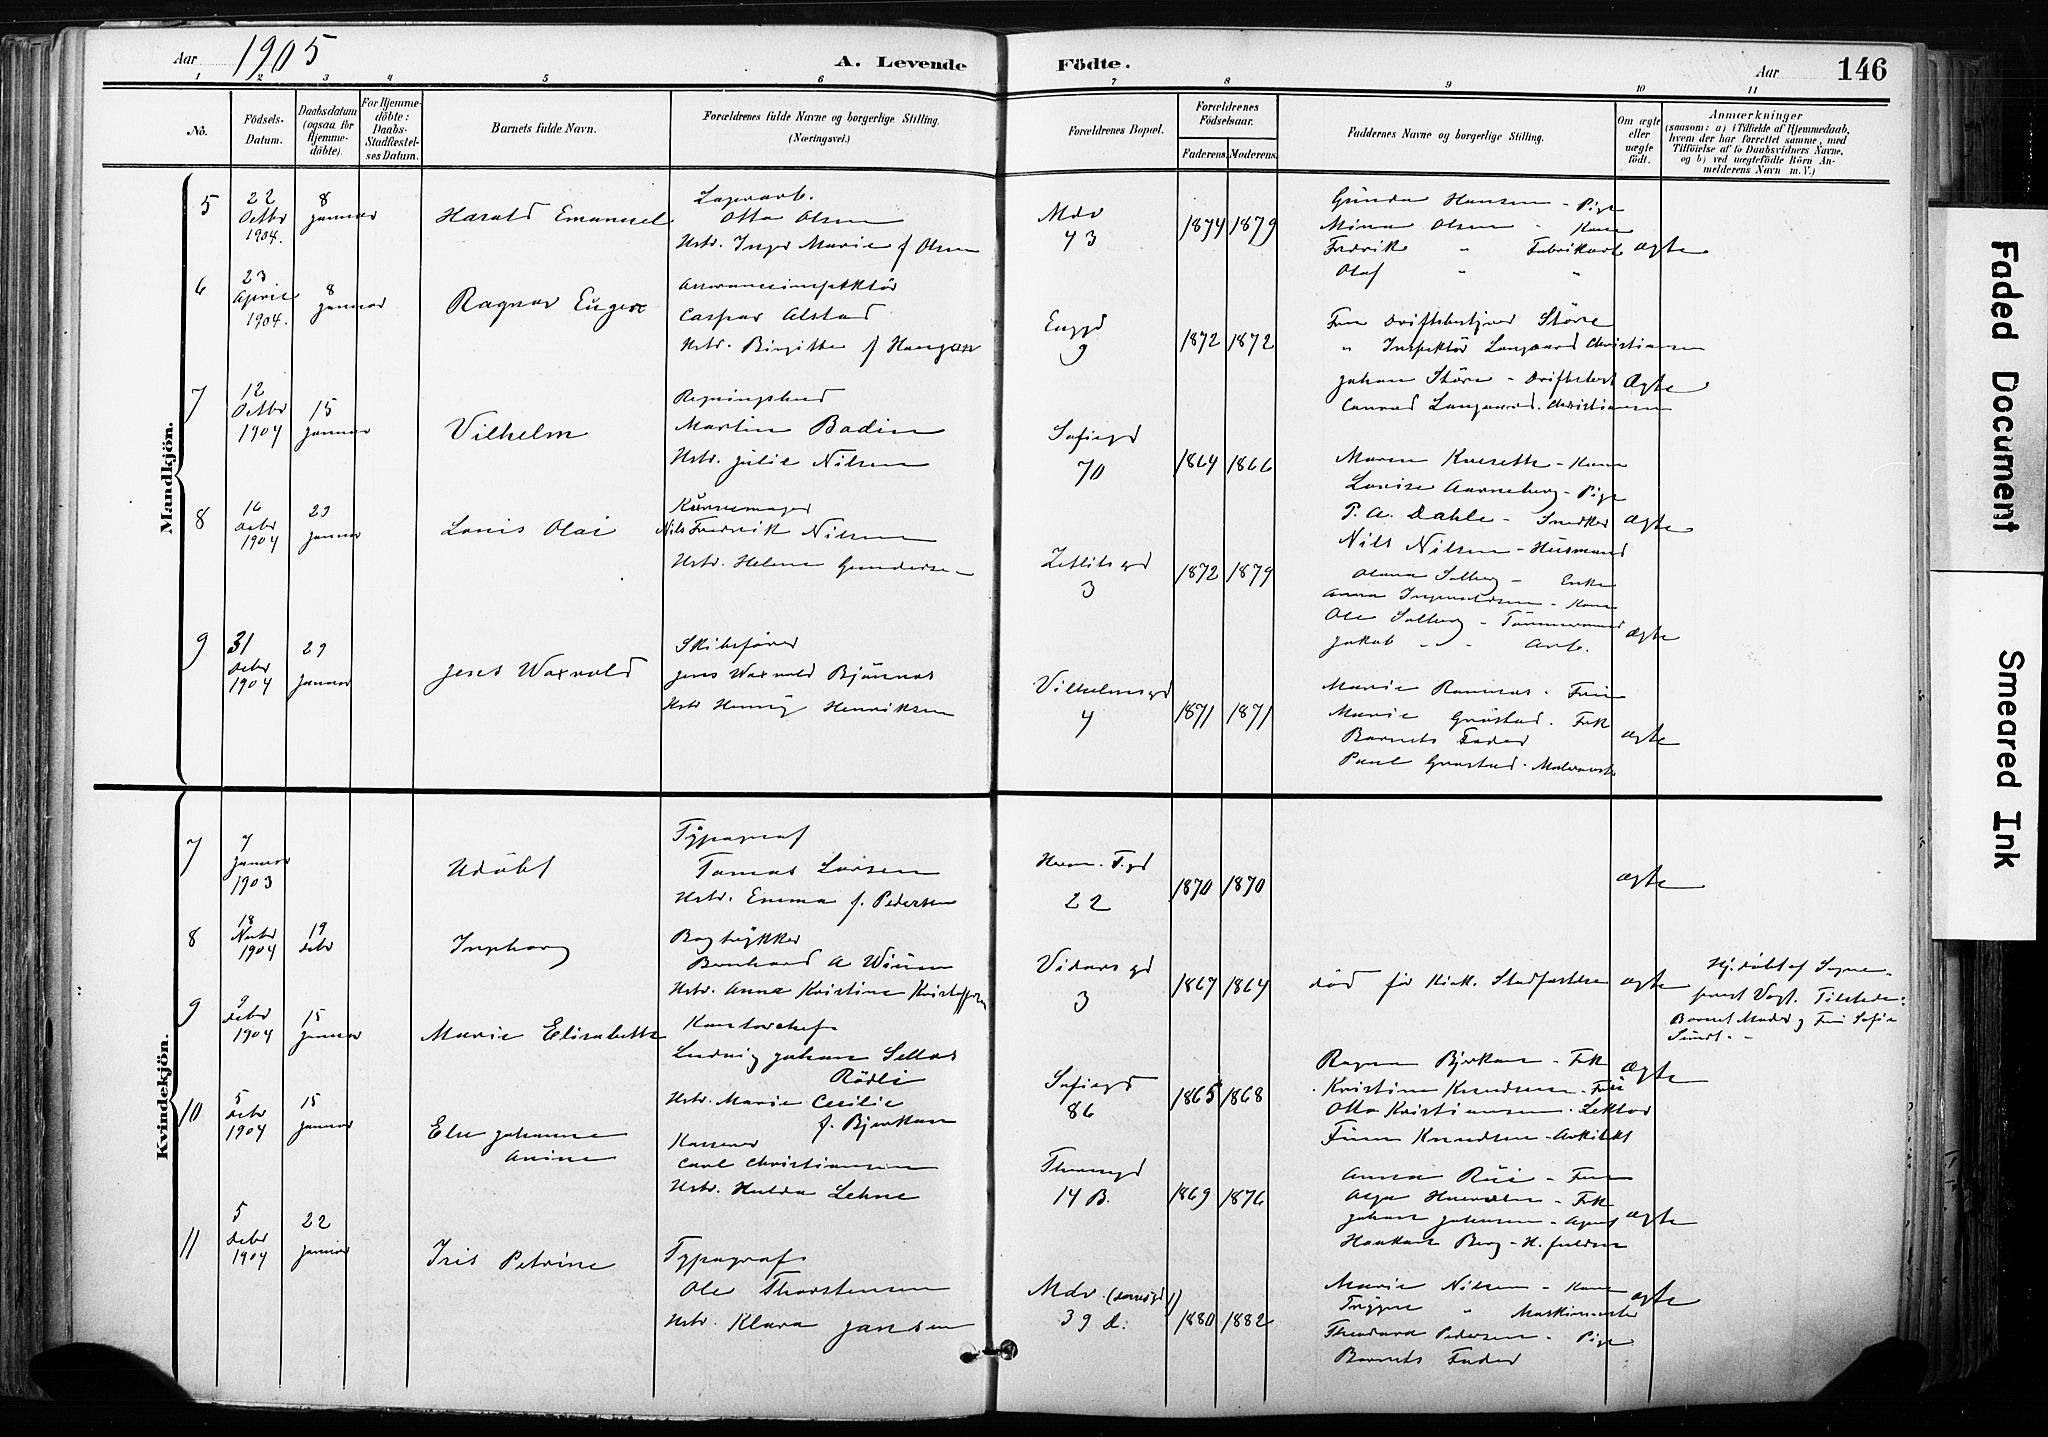 Aar 1905
A. Levende Födte.
Aar 146
1 2 3 4 5 6 7 8 9 10 11
No.
Födsels-
Datum.
Daabsdatum
(ogsaa for
Hjemme-
döbte).
For Hjemme-
döbte:
Daabs-
Stadfæstel-
ses Datum.
Barnets fulde Navn.
Forældrenes fulde Navne og borgerlige Stilling.
(Næringsvei.)
Forældrenes Bopæl.
Forældrenes
Födselsaar.
Faderens. Moderens.
Faddernes Navne og borgerlige Stilling.
Om ægte
eller
uægte
födt.
Anmærkninger
(saasom: a) i Tilfælde af Hjemmedaab,
hvem der har forrettet samme, med
Tilföielse af to Daabsvidners Navne,
og b) ved uægtefödte Börn An-
melderens Navn m. V.)
Mandkjön.
5
22
Octbr
1904.
8
januar
Harald Emanuel
Lagerarb.
Otto Olsen
Hstr. Inga Marie f Olsen
Mdv
43
1874 1879
Gunda Hansen - Pige
Mina Olsen - Kone
Fredrik " Fabrikarb
Olaf " "
ægte
6
23
April
1904.
8
januar
Ragnar Eugen
Assuranceinspektör
Caspar Alstad
Hstr. Birgitte f Haugan
Enggd
9
1872 1872
Fru Driftsbestyrer Störe
" Inspektör Langaard Christiansen
Johan Störe - Driftsbest
Conrad Langaard. Christiansen
Ægte
7
12
Octbr
1904
15
januar
Vilhelm
Regningsbud
Martin Bodin
Hstr. Julie Nilsen
Sofiegd
70
1864 1866
Maren Kveseth - Kone
Lovise Aarneberg - Pige
P. A. Dahle - Snedker
Nils Nilsen - Husmand
Ægte
8
16
Decbr
1904
29
januar
Louis Olai
Kurvemager
Nils Fredrik Nilsen
Hstr. Helene Gundersen
Zetlitzgd
3
1872 1879
Olava Solberg - Enke
Anna Ingvaldsen - Kone
Ole Solberg - Tömmermand
Jakob " " Arb.
Ægte
9
31
Decbr
1904
29
januar
Jens Waxvold
Skibsförer
Jens Waxvold Björnnes
Hstr Henny Henriksen
Vilhelmsgd
4
1871 1871
Marie Ramnes - Fru
Marie Gröstad. Frk
Barnets Fader
Paul Gröstad - Malermester
ægte
Kvindekjön.
7
7
januar
1903
Udöbt
Typograf
Tomas Larsen
Hstr. Emma f. Pedersen
Herm. F. gd
22
1870 1870
ægte
8
18
Novbr
1904
19
debr
Ingeborg
Bogtrykker
Bernhard A Wium
Hstr. Anna Kristine Kristoffersen
Vidarsgd
3
1867 1864
död för Kirk. Stadfæstelse
ægte
Hj.döbt af Sogne-
prest Vogt. Tilstede:
Barnets Moder og Fru Sofie
Sundt. -
9
9
debr
1904
15
januar
Marie Elisabeth
Kontorchef
Ludvig Johan Sellas
Rödli
Hstr. Marie Cecilie
f. Bjerkan
Sofiegd
86
1865 1868
Ragna Bjerkan - Frk
Kristine Knudsen - Frü
Otto Kristiansen - Lektor
Finn Knudsen - Arkitekt
Ægte
10
5
debr
1904
15
januar
Else Johanne
Anine
Kasserer
Carl Christiansen
Hstr. Hulda Lehne
Theresegd
14 B.
1869 1876
Anna Rüi - Fru
Johan Johansen - Agent
Haakon Berg - H. fuldm
ægte
11
5
debr
1904
22
januar
Iris Petrine
Typograf
Ole Thorstensen
Hstr. Klara Jansen
Mdv
39 d.
1880 1882
Marie Nilsen - Kone
Trygve " Maskinmester
Theodora Pedersen - Pige
Barnets Fader
ægte
Faded Document
Smeared Ink